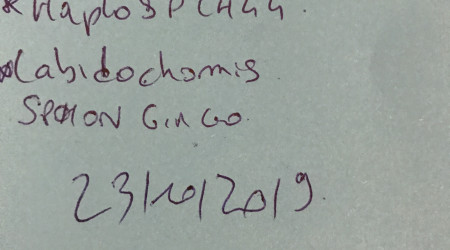 * Haplo SPC444.
Labidochomis
SPOION GinGo.
23/10/2019.